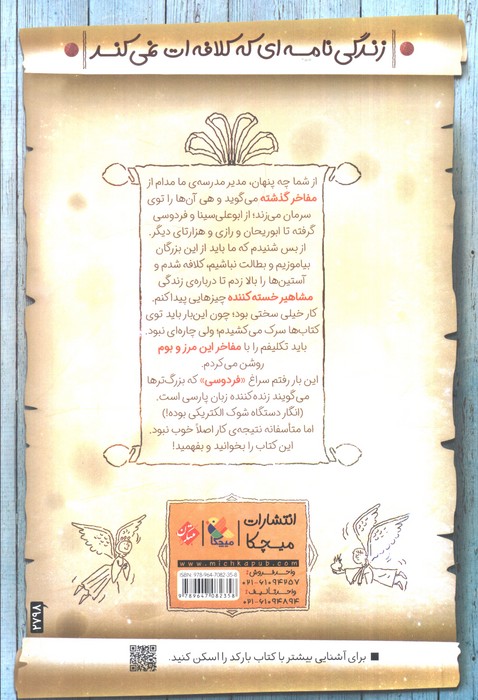 زندگی نامه ای که کلافه ات نمی کند
از شما چه پنهان، مدیر مدرسه‌ی ما مدام از
مفاخر گذشته می‌گوید و هی آن‌ها را توی
سرمان می‌زند؛ از ابوعلی‌سینا و فردوسی
گرفته تا ابوریحان و رازی و هزارتای دیگر.
از بس شنیدم که ما باید از این بزرگان
بیاموزیم و بطالت نباشیم، کلافه شدم و
آستین‌ها را بالا زدم تا درباره‌ی زندگی
مشاهیر خسته‌کننده چیزهایی پیدا کنم.
کار خیلی سختی بود؛ چون این‌بار باید توی
کتاب‌ها سرک می‌کشیدم؛ ولی چاره‌ای نبود.
باید تکلیفم را با مفاخر این مرز و بوم
روشن می‌کردم.
این بار رفتم سراغ «فردوسی» که بزرگ‌ترها
می‌گویند زنده‌کننده زبان پارسی است.
(انگار دستگاه شوک الکتریکی بوده!)
اما متأسفانه نتیجه‌ی کار اصلاً خوب نبود.
این کتاب را بخوانید و بفهمید!
انتشارات
میچکا
میچکا
مبتکران
www.michkapub.com
ISBN: 978-964-7082-35-8
9789647082358
واحد فروش:
۰۲۱-۶۱۰۹۴۲۵۷
واحد تألیف:
۰۲۱-۶۱۰۹۴۸۹۴
۲۷۹۸
برای آشنایی بیشتر با کتاب بارکد را اسکن کنید.